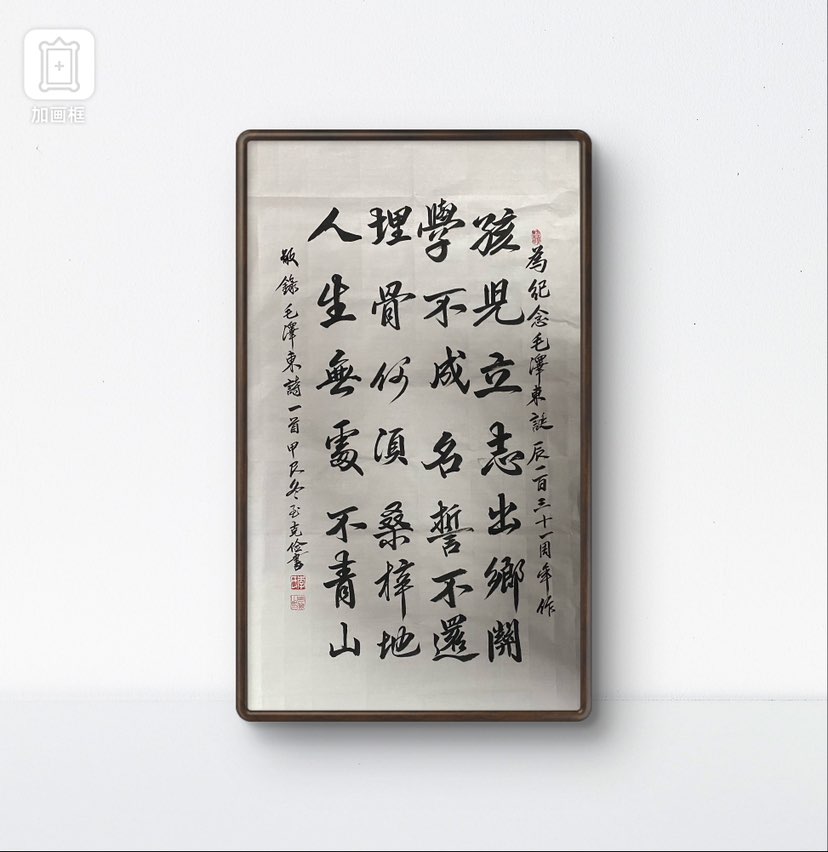 加画框
為紀念毛澤東誕辰一百三十一周年作
孩兒立志出鄉關
學不成名誓不還
埋骨何須桑梓地
人生無處不青山
敬錄毛澤東詩一首甲辰冬玉克儉書